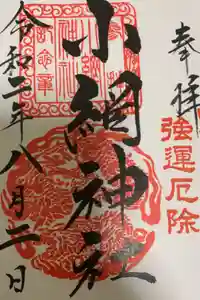 奉拝
強運厄除
小網神社
令和二年八月二日